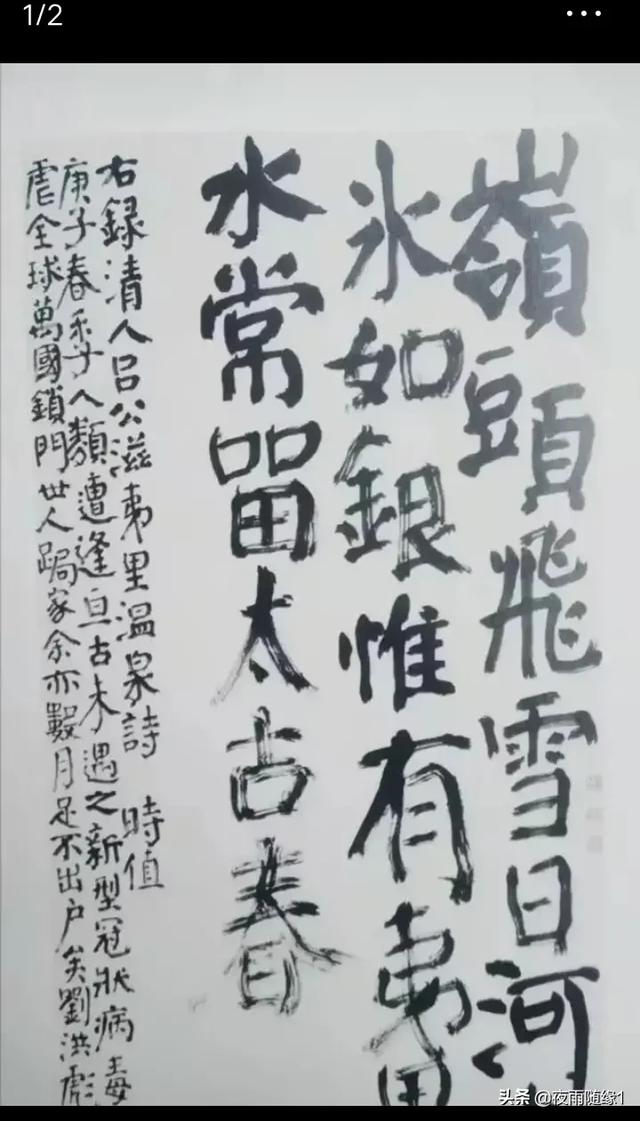 1/2
嶺頭飛雪日河
氷如銀惟有夷
水常㽞太古春
右録清人吕公滋夷里温泉詩 時值
庚子春季人類遭逢亘古未遇之新型冠狀病毒
虐全球萬國鎖門世人跼家余亦數月足不出户矣劉洪彪
头条 @夜雨随缘1